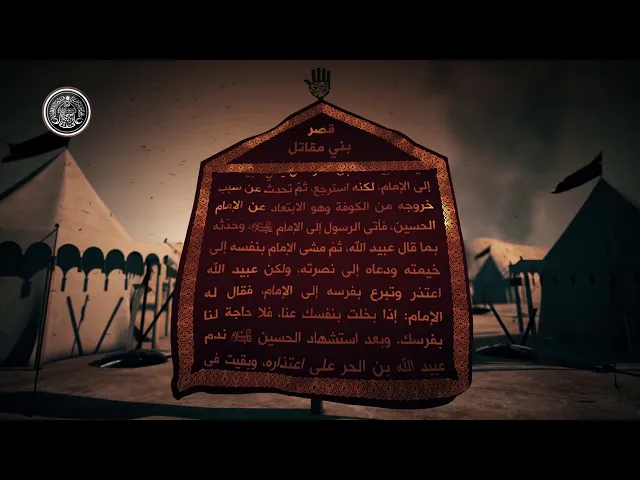 قصر
بني مقاتل
إلى الإمام، لكنه استرجع، ثمّ تحدث عن سبب
خروجه من الكوفة وهو الابتعاد عن الإمام
الحسين، فأتى الرسول إلى الإمام ﷺ، وحدّثه
بما قال عبيد الله، ثمّ مشى الإمام بنفسه إلى
خيمته ودعاه إلى نصرته، ولكن عبيد الله
اعتذر وتبرع بفرسه إلى الإمام، فقال له
الإمام: إذا بخلت بنفسك عنا، فلا حاجة لنا
بفرسك، وبعد استشهاد الحسين ندم
عبيد الله بن الحر على اعتذاره، وبقيت في